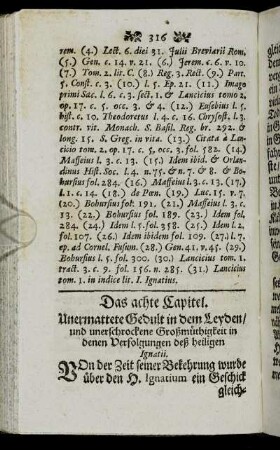 316
rem. (4.) Lect. 6. diei 31. Julii Breviarii Rom.
(5.) Gen. c. 14. v. 21. (6.) Jerem. c. 6. v. 10.
(7.) Tom. 2. lit. C. (8.) Reg. 3. Rect. (9.) Part.
5. Const. c. 3. (10.) l. 5. Ep. 21. (11.) Imago
primi Sæc. l. 6. c. 3. sect. 1. & Lancicius tomo 2.
op. 17. c. 5. occ. 3. & 4. (12.) Eusebius l. 5.
hist. c. 10. Theodoretus l. 4. c. 16. Chrysost. l. 3.
contr. vit. Monach. S. Basil. Reg. br. 292. &
long. 15. S. Greg. in vita. (13.) Citata à Lan-
cicio tom. 2. op. 17. c. 5. occ. 3. fol. 582. (14.)
Maffeius l. 3. c. 13. (15.) Idem ibid. & Orlan-
dinus Hist. Soc. l. 4. n. 75. & n. 7. & 8. & Bo-
hursius fol. 284. (16.) Maffeius l. 3. c. 13. (17.)
l. 1. c. 14. (18.) de Pœn. (19.) Luc. 15. v. 7.
(20.) Bohursius fol. 191. (21.) Maffeius l. 3. c.
13. (22.) Bohursius fol. 189. (23.) Idem fol.
284. (24.) Idem l. 5. fol. 358. (25.) Idem l. 2.
fol. 107. (26.) Idem ibidem fol. 109. (27.) l. 7.
ep. ad Cornel. Fusion. (28.) Gen. 41. v. 45. (29.)
Bohursius l. 5. fol. 300. (30.) Lancicius tom. 1.
tract. 3. c. 9. fol. 156. n. 285. (31.) Lancicius
tom. 1. in indice lit. I. Ignatius.
Das achte Capitel.
Unermattete Gedult in dem Leyden/
und unerschrockene Großmüthigkeit in
denen Verfolgungen deß heiligen
Ignatii.
VOn der Zeit seiner Bekehrung wurde
über den H. Ignatium ein Geschick
gleich-